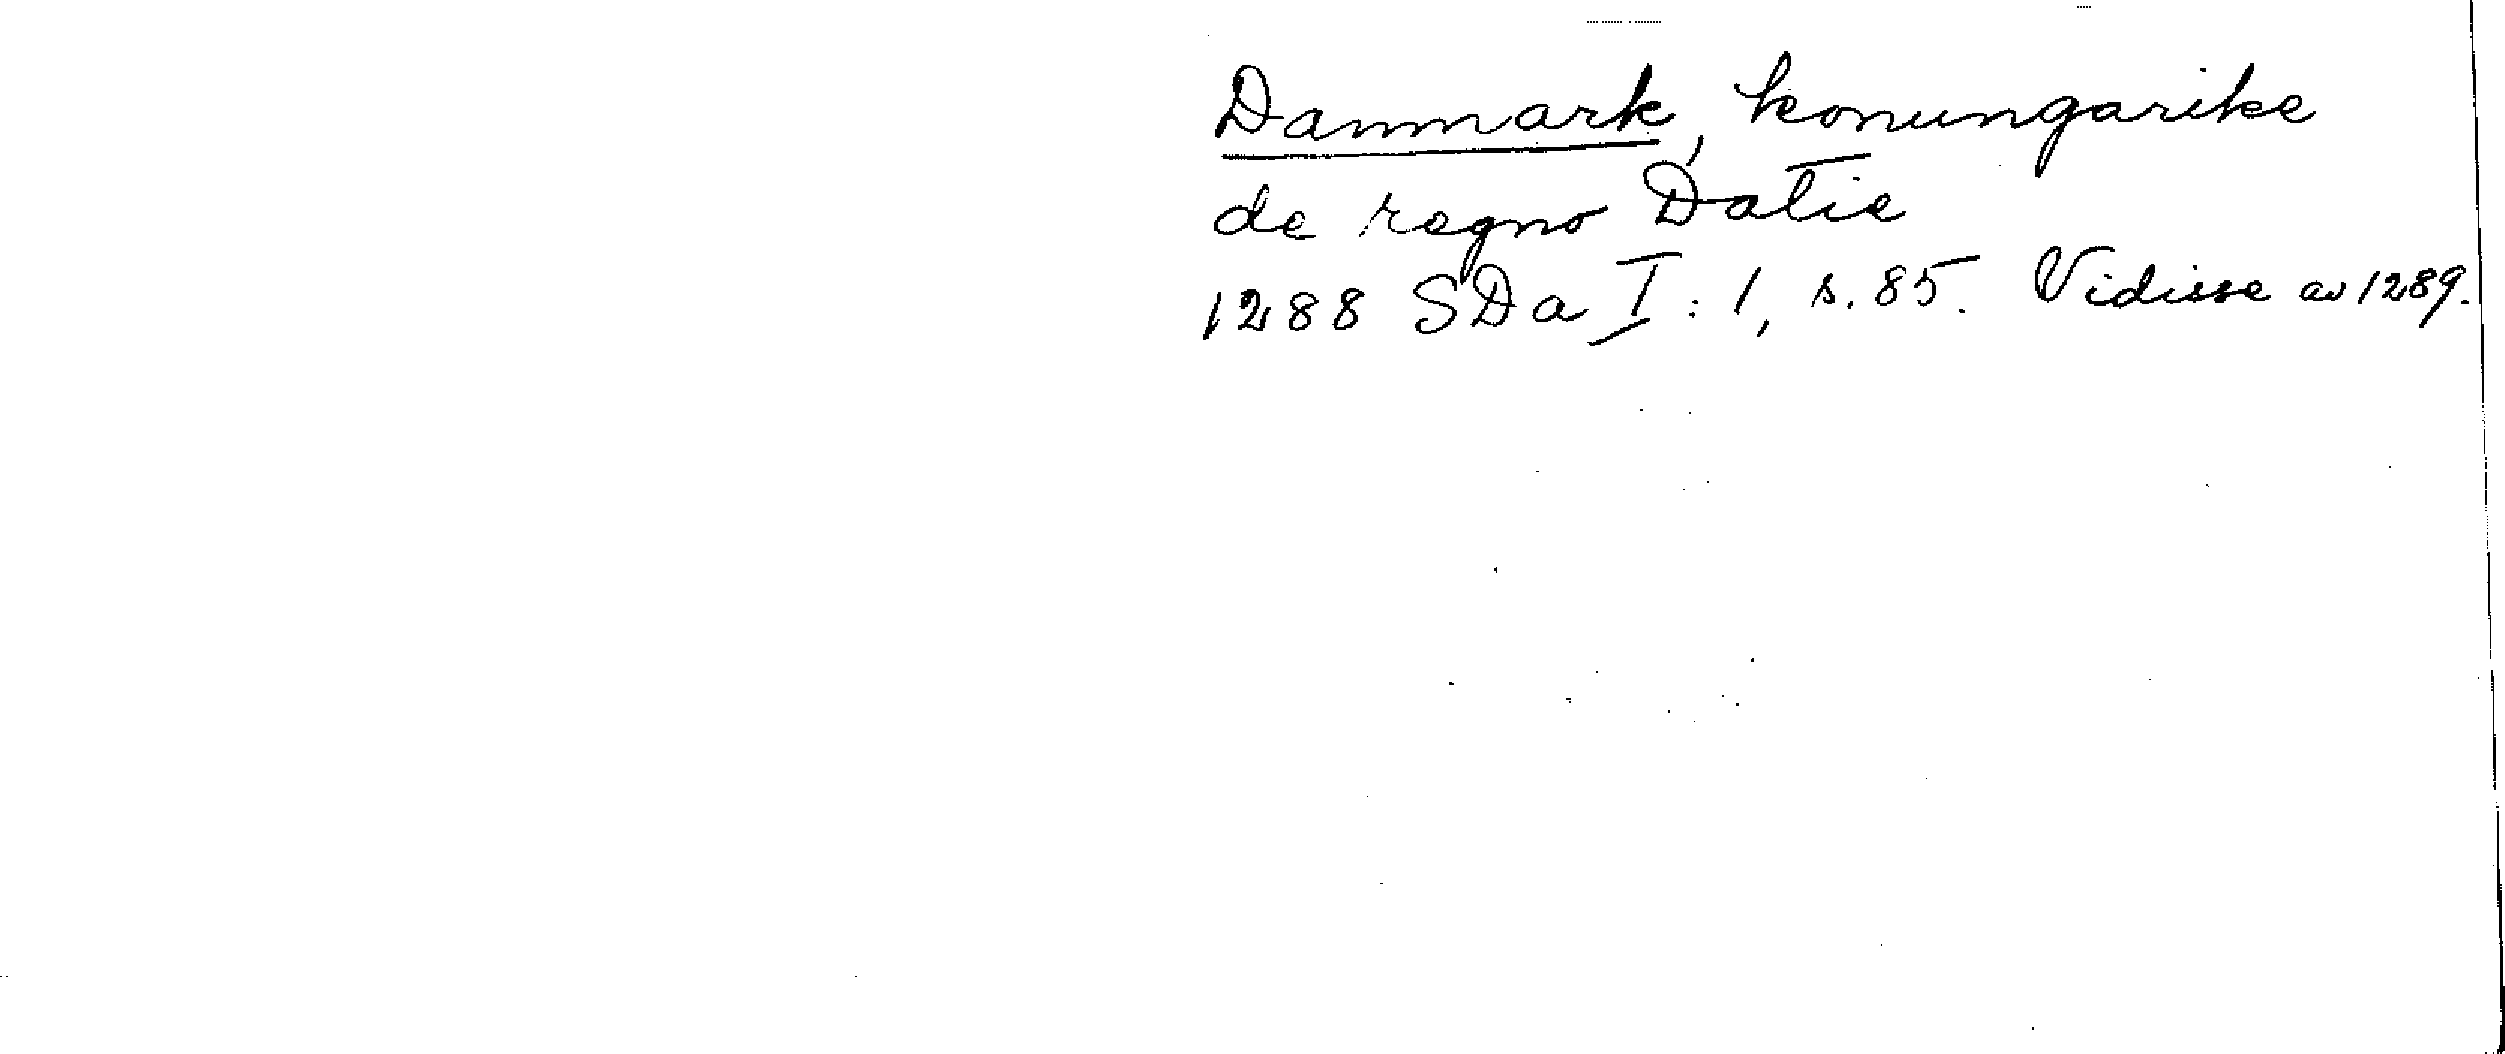 Danmark, konungarike
de regno Datie
1288 SDa I:1, s. 85. Vidisse av 1289.